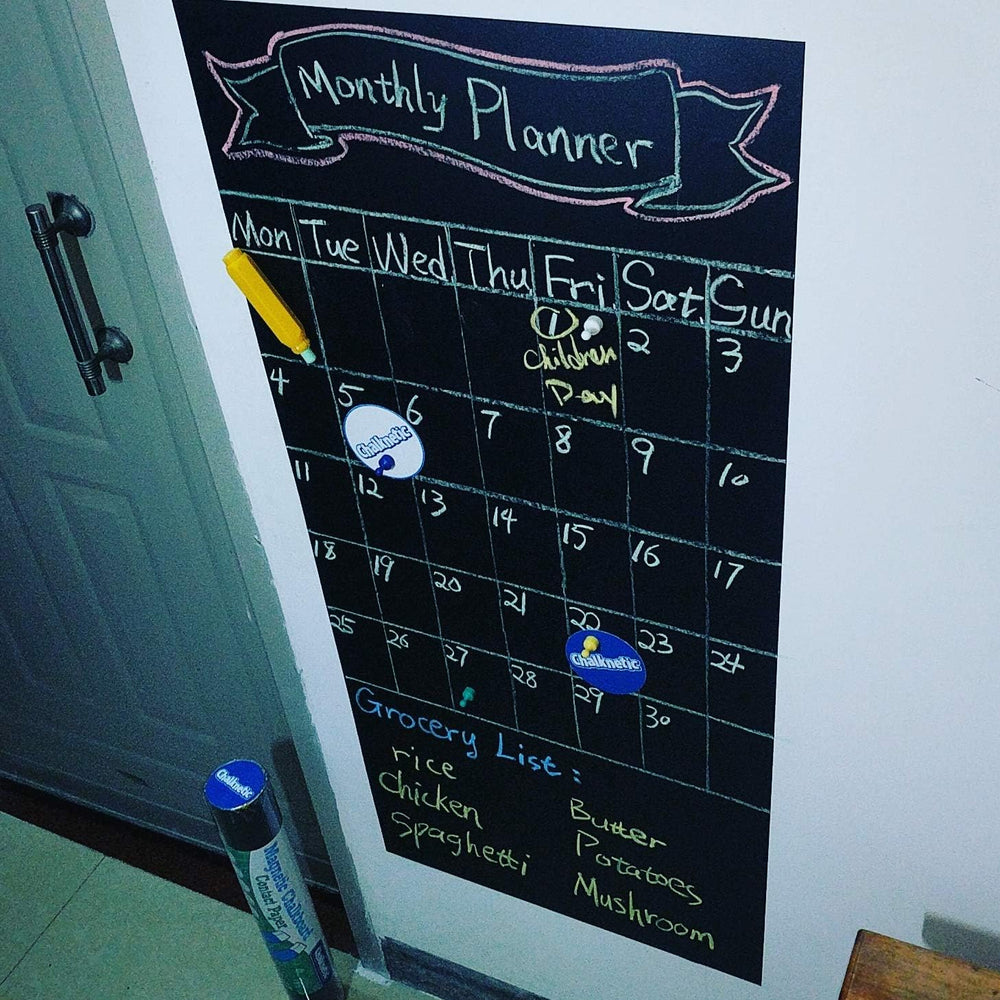 Monthly Planner
Mon Tue Wed Thu Fri Sat. Sun
1 2 3
Children
Day
4 5 6 7 8 9 10
Chalknetic
11 12 13 14 15 16 17
18 19 20 21 22 23 24
Chalknetic
25 26 27 28 29 30
Grocery List :
rice Butter
Chicken Potatoes
Spaghetti Mushroom
Chalknetic
Magnetic Chalkboard
Contact Paper